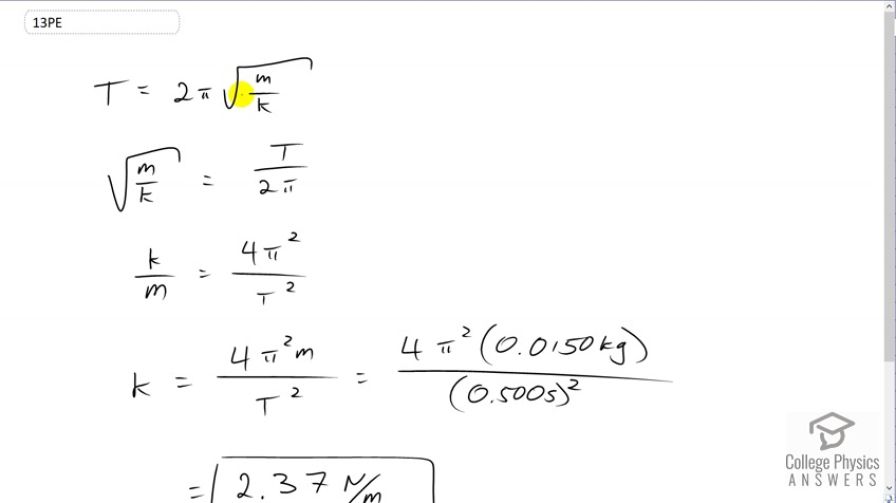 13PE
T = 2π √(m/k)
√(m/k) = T/2π
k/m = 4π²/T²
k = 4π²m/T² = 4π²(0.0150kg)/(0.500s)²
= 2.37 N/m
College Physics
ANSWERS